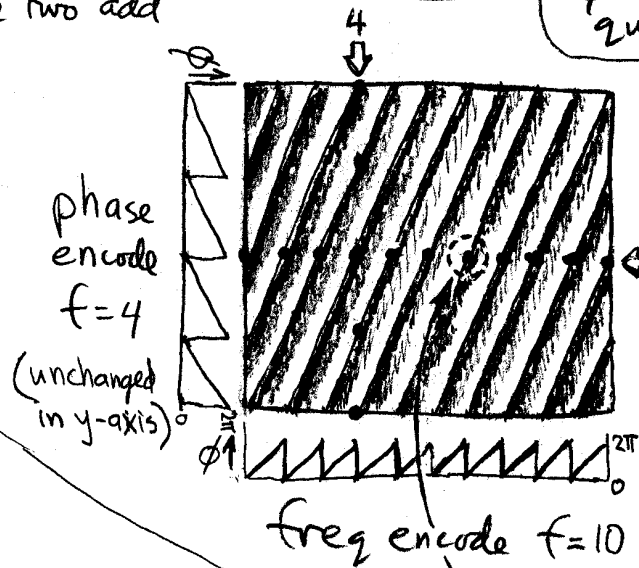 two add
qu
4
ϕ
phase
encode
f=4
(unchanged
in y-axis)
0
2π
ϕ
2π
0
freq encode f=10